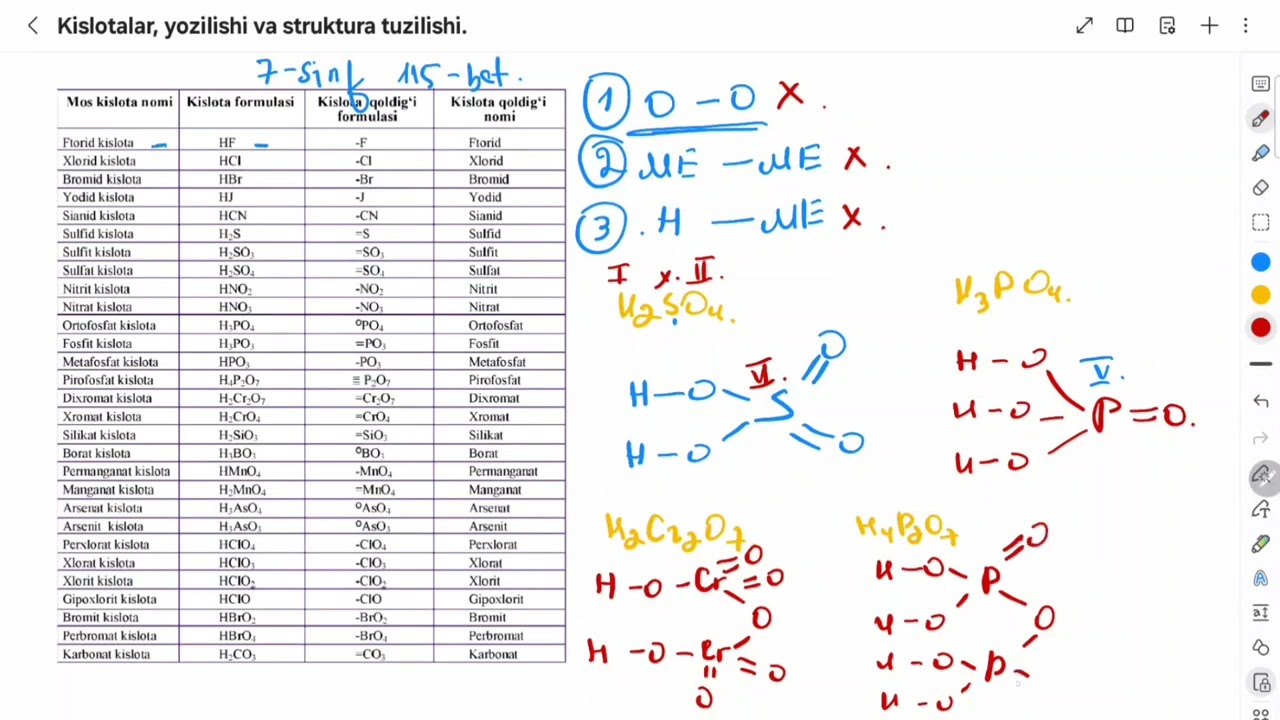 Kislotalar, yozilishi va struktura tuzilishi.
7-sinf 115-bet.
Mos kislota nomi Kislota formulasi Kislota qoldig‘i formulasi Kislota qoldig‘i nomi
Ftorid kislota HF -F Ftorid
Xlorid kislota HCl -Cl Xlorid
Bromid kislota HBr -Br Bromid
Yodid kislota HJ -J Yodid
Sianid kislota HCN -CN Sianid
Sulfid kislota H₂S =S Sulfid
Sulfit kislota H₂SO₃ =SO₃ Sulfit
Sulfat kislota H₂SO₄ =SO₄ Sulfat
Nitrit kislota HNO₂ -NO₂ Nitrit
Nitrat kislota HNO₃ -NO₃ Nitrat
Ortofosfat kislota H₃PO₄ ºPO₄ Ortofosfat
Fosfit kislota H₃PO₃ =PO₃ Fosfit
Metafosfat kislota HPO₃ -PO₃ Metafosfat
Pirofosfat kislota H₄P₂O₇ ≡ P₂O₇ Pirofosfat
Dixromat kislota H₂Cr₂O₇ =Cr₂O₇ Dixromat
Xromat kislota H₂CrO₄ =CrO₄ Xromat
Silikat kislota H₂SiO₃ =SiO₃ Silikat
Borat kislota H₃BO₃ ºBO₃ Borat
Permanganat kislota HMnO₄ -MnO₄ Permanganat
Manganat kislota H₂MnO₄ =MnO₄ Manganat
Arsenat kislota H₃AsO₄ ºAsO₄ Arsenat
Arsenit kislota H₃AsO₃ ºAsO₃ Arsenit
Perxlorat kislota HClO₄ -ClO₄ Perxlorat
Xlorat kislota HClO₃ -ClO₃ Xlorat
Xlorit kislota HClO₂ -ClO₂ Xlorit
Gipoxlorit kislota HClO -ClO Gipoxlorit
Bromit kislota HBrO₂ -BrO₂ Bromit
Perbromat kislota HBrO₄ -BrO₄ Perbromat
Karbonat kislota H₂CO₃ =CO₃ Karbonat
1 O - O X.
2 ME - ME X.
3 . H - ME X.
I x. II.
H₂SO₄.
VI. O
H-O S
H-O O
H₃PO₄.
H-O V.
H-O- P=O.
H-O
H₂Cr₂O₇
O
H-O-Cr=O
O
H-O-Cr=O
O
H₄P₂O₇
O
H-O- P
H-O O
H-O- P-
H-O